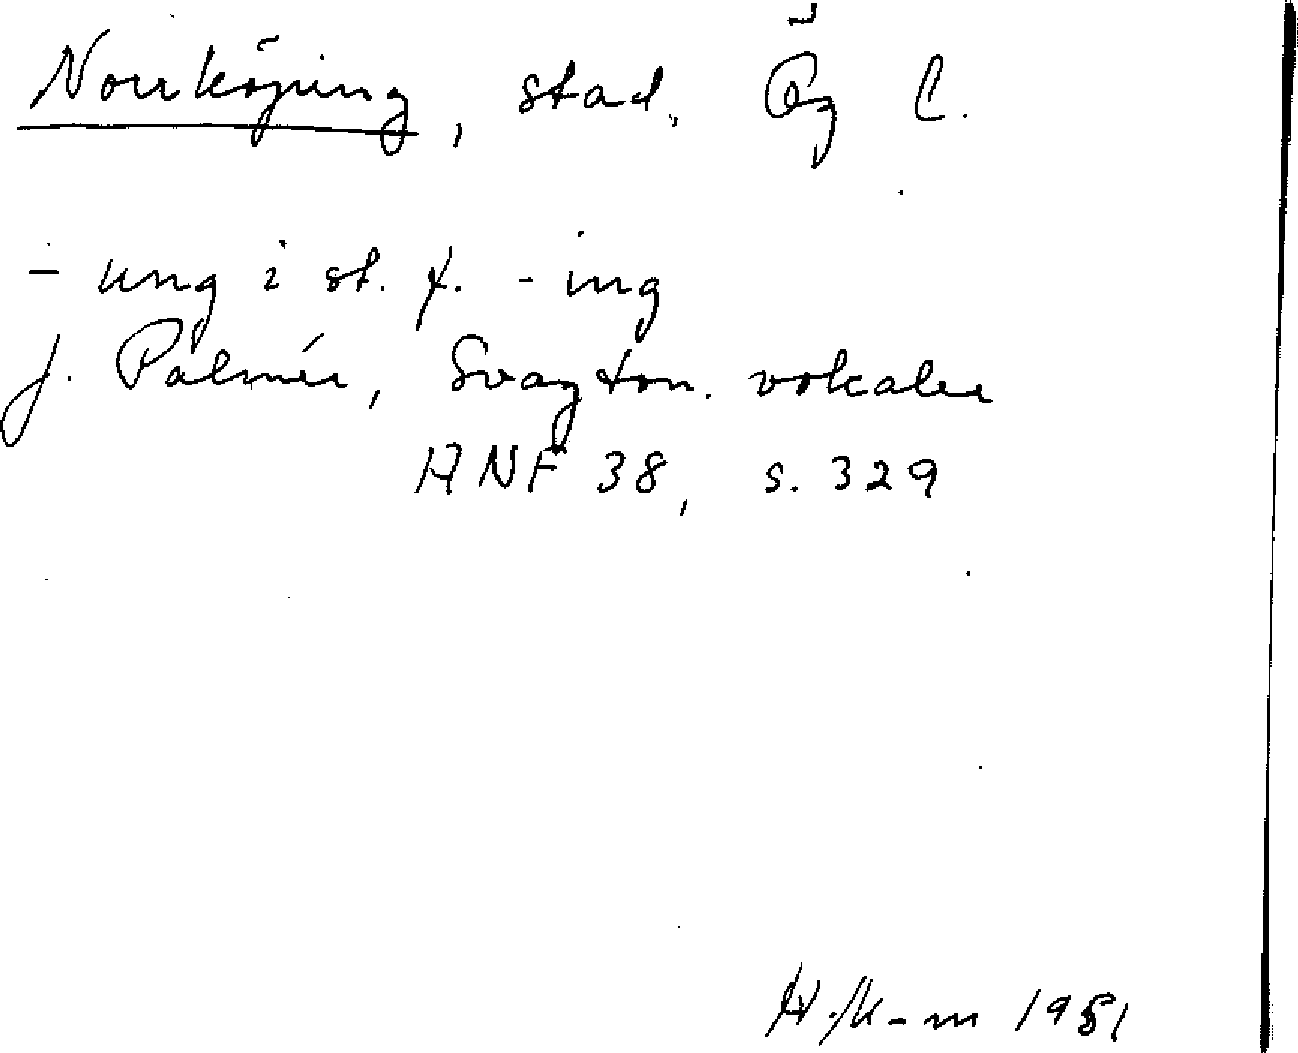 Norrköping, stad, Ög l.
- ung i st. f. - ing
J. Palmér, Svagton. vokaler
ANF 38, s. 329
1951